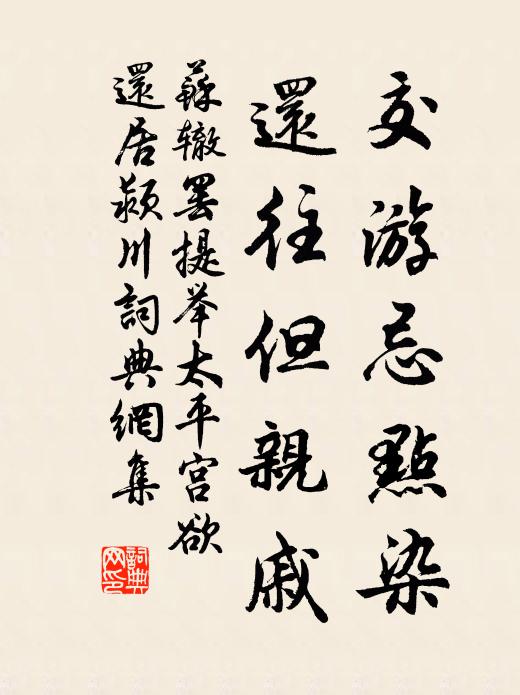 交游忌點染
還往但親戚
蘇辙罢提举太平宫欲
還居颍川詞典網集
詞典网印